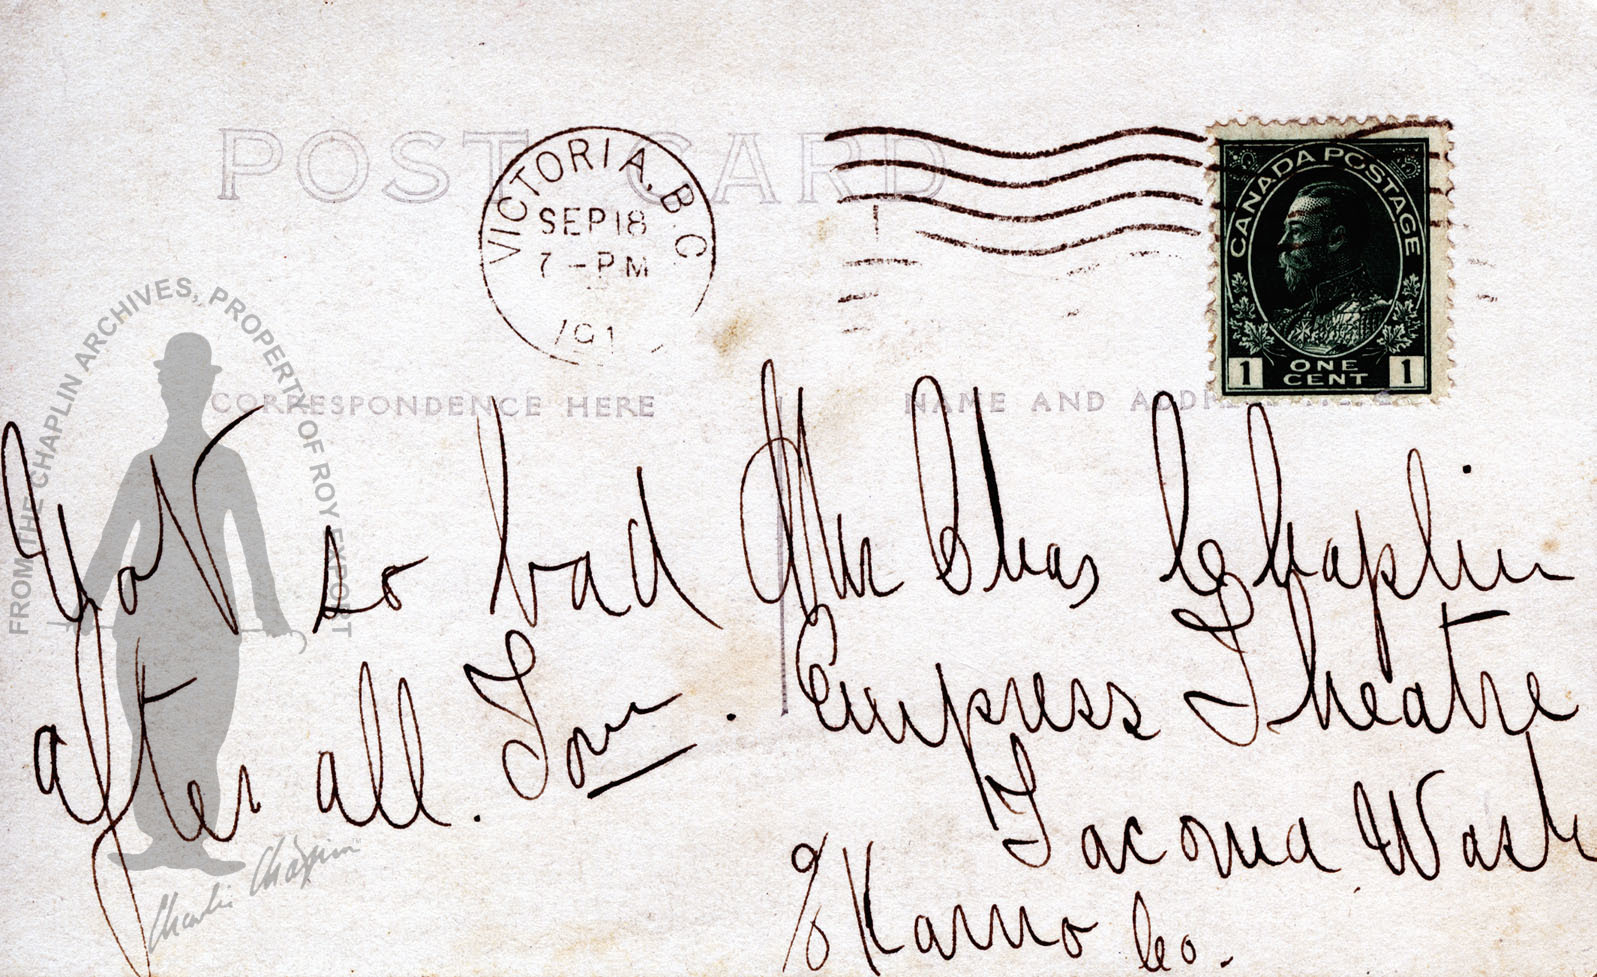 POST CARD
VICTORIA, B.C.
SEP 18
7 - PM
191
CANADA POSTAGE
1 ONE CENT 1
CORRESPONDENCE HERE
NAME AND ADDRESS HERE
Not so bad
after all. Tom.
Mr Chas Chaplin
Empress Theatre
Tacoma Wash
c/o Karno Co.
FROM THE CHAPLIN ARCHIVES, PROPERTY OF ROY EXPORT
Charlie Chaplin